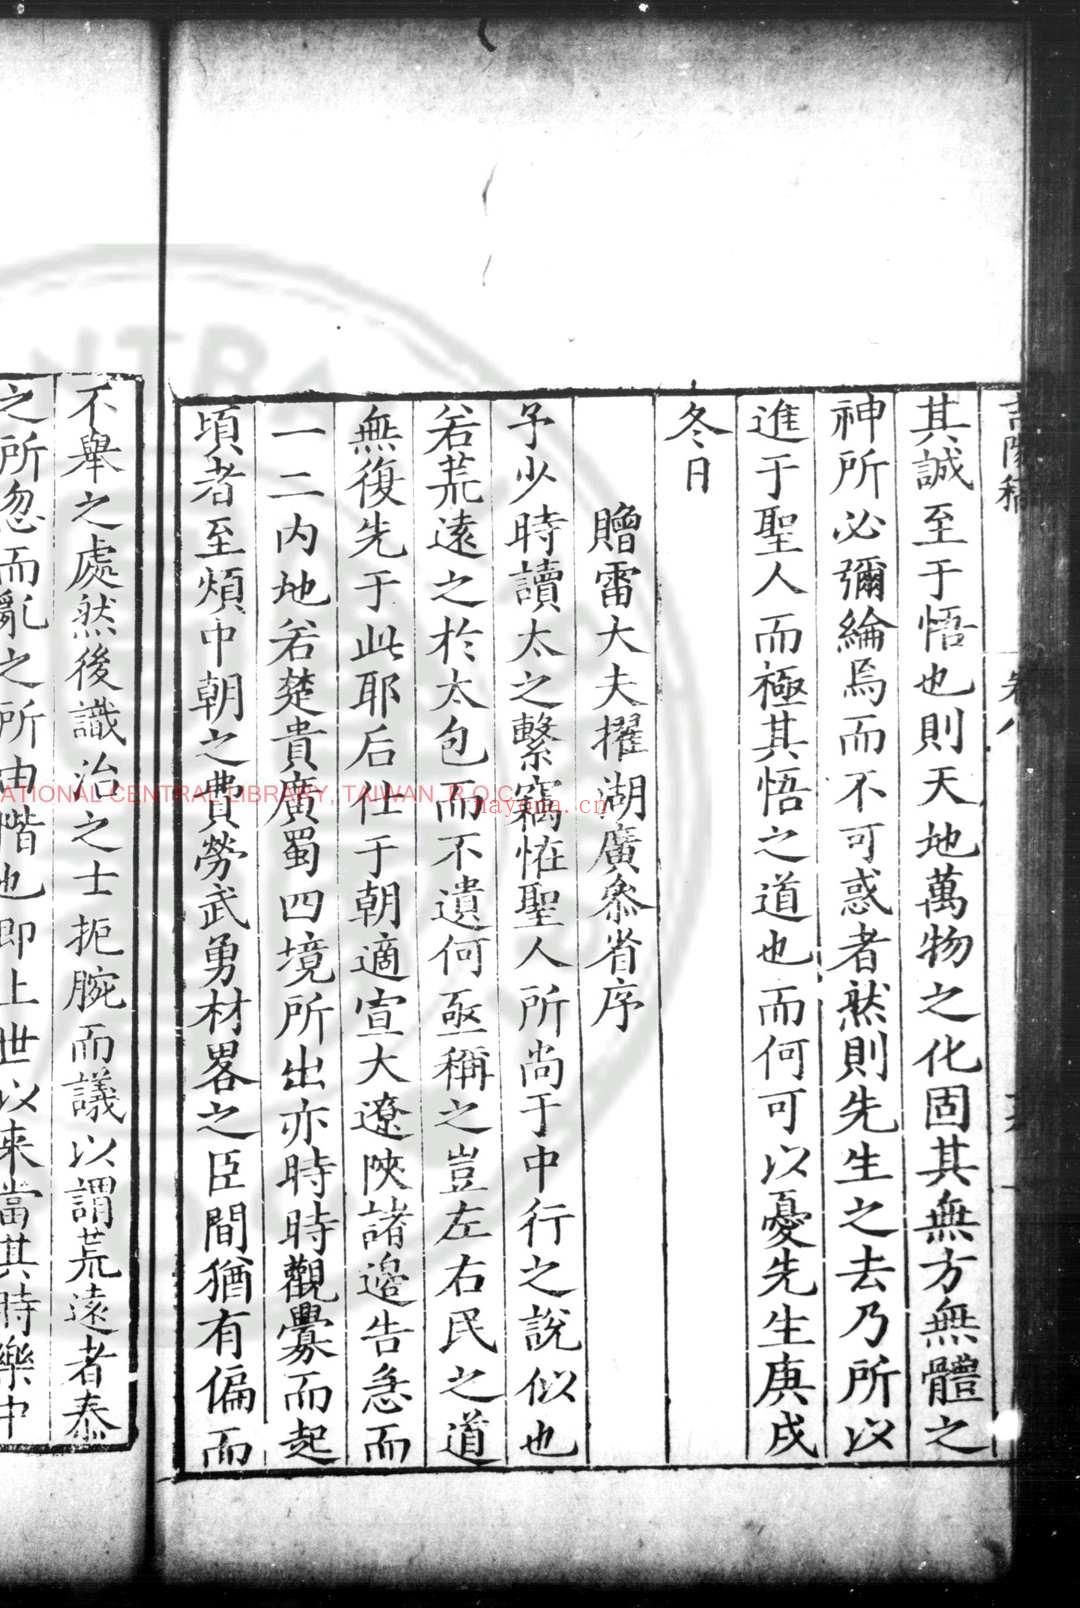 其誠至于悟也則天地萬物之化固其無方無體之
神所必彌綸焉而不可惑者然則先生之去乃所以
進于聖人而極其悟之道也而何可以憂先生庚戌
冬日
贈雷大夫擢湖廣叅省序
予少時讀太之繫竊恠聖人所尚于中行之說似也
若荒遠之於太包而不遺何亟稱之豈左右民之道
無復先于此耶后仕于朝適宣大遼陝諸邊告急而
一二内地若楚貴廣蜀四境所出亦時時觀釁而起
頃者至煩中朝之費勞武勇材畧之臣間猶有偏而
不舉之處然後識治之士扼腕而議以謂荒遠者泰
之所忽而亂之所由階也即上世以来當其時樂中
NATIONAL CENTRAL LIBRARY, TAIWAN, R.O.C.
nayona.cn